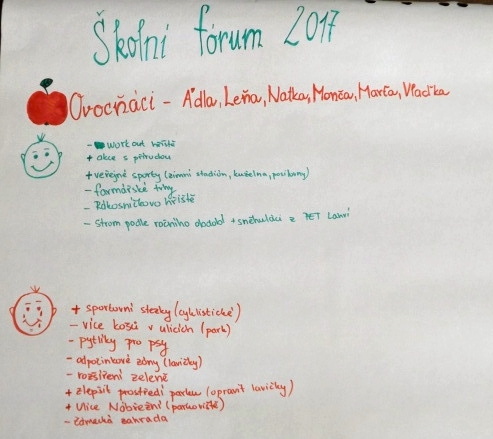 Školní fórum 2017
Ovocňáci - Áďla, Leňa, Naťka, Monča, Marťa, Vlaďka
- workout hřiště
+ akce s přírodou
+ veřejné sporty (zimní stadión, kuželna,
- farmářské trhy
- Rákosníčkovo hřiště
- Strom podle ročního období + sněhuláci z PET Lahví
+ sportovní stezky (cyklistické)
- více košů v ulicích (park)
- pytlíky pro psy
- odpočinkové zóny (lavičky)
- rozšíření zeleně
+ zlepšit prostředí parku (opravit lavičky)
+ Ulice Nábřežní (parkoviště)
- zámecká zahrada